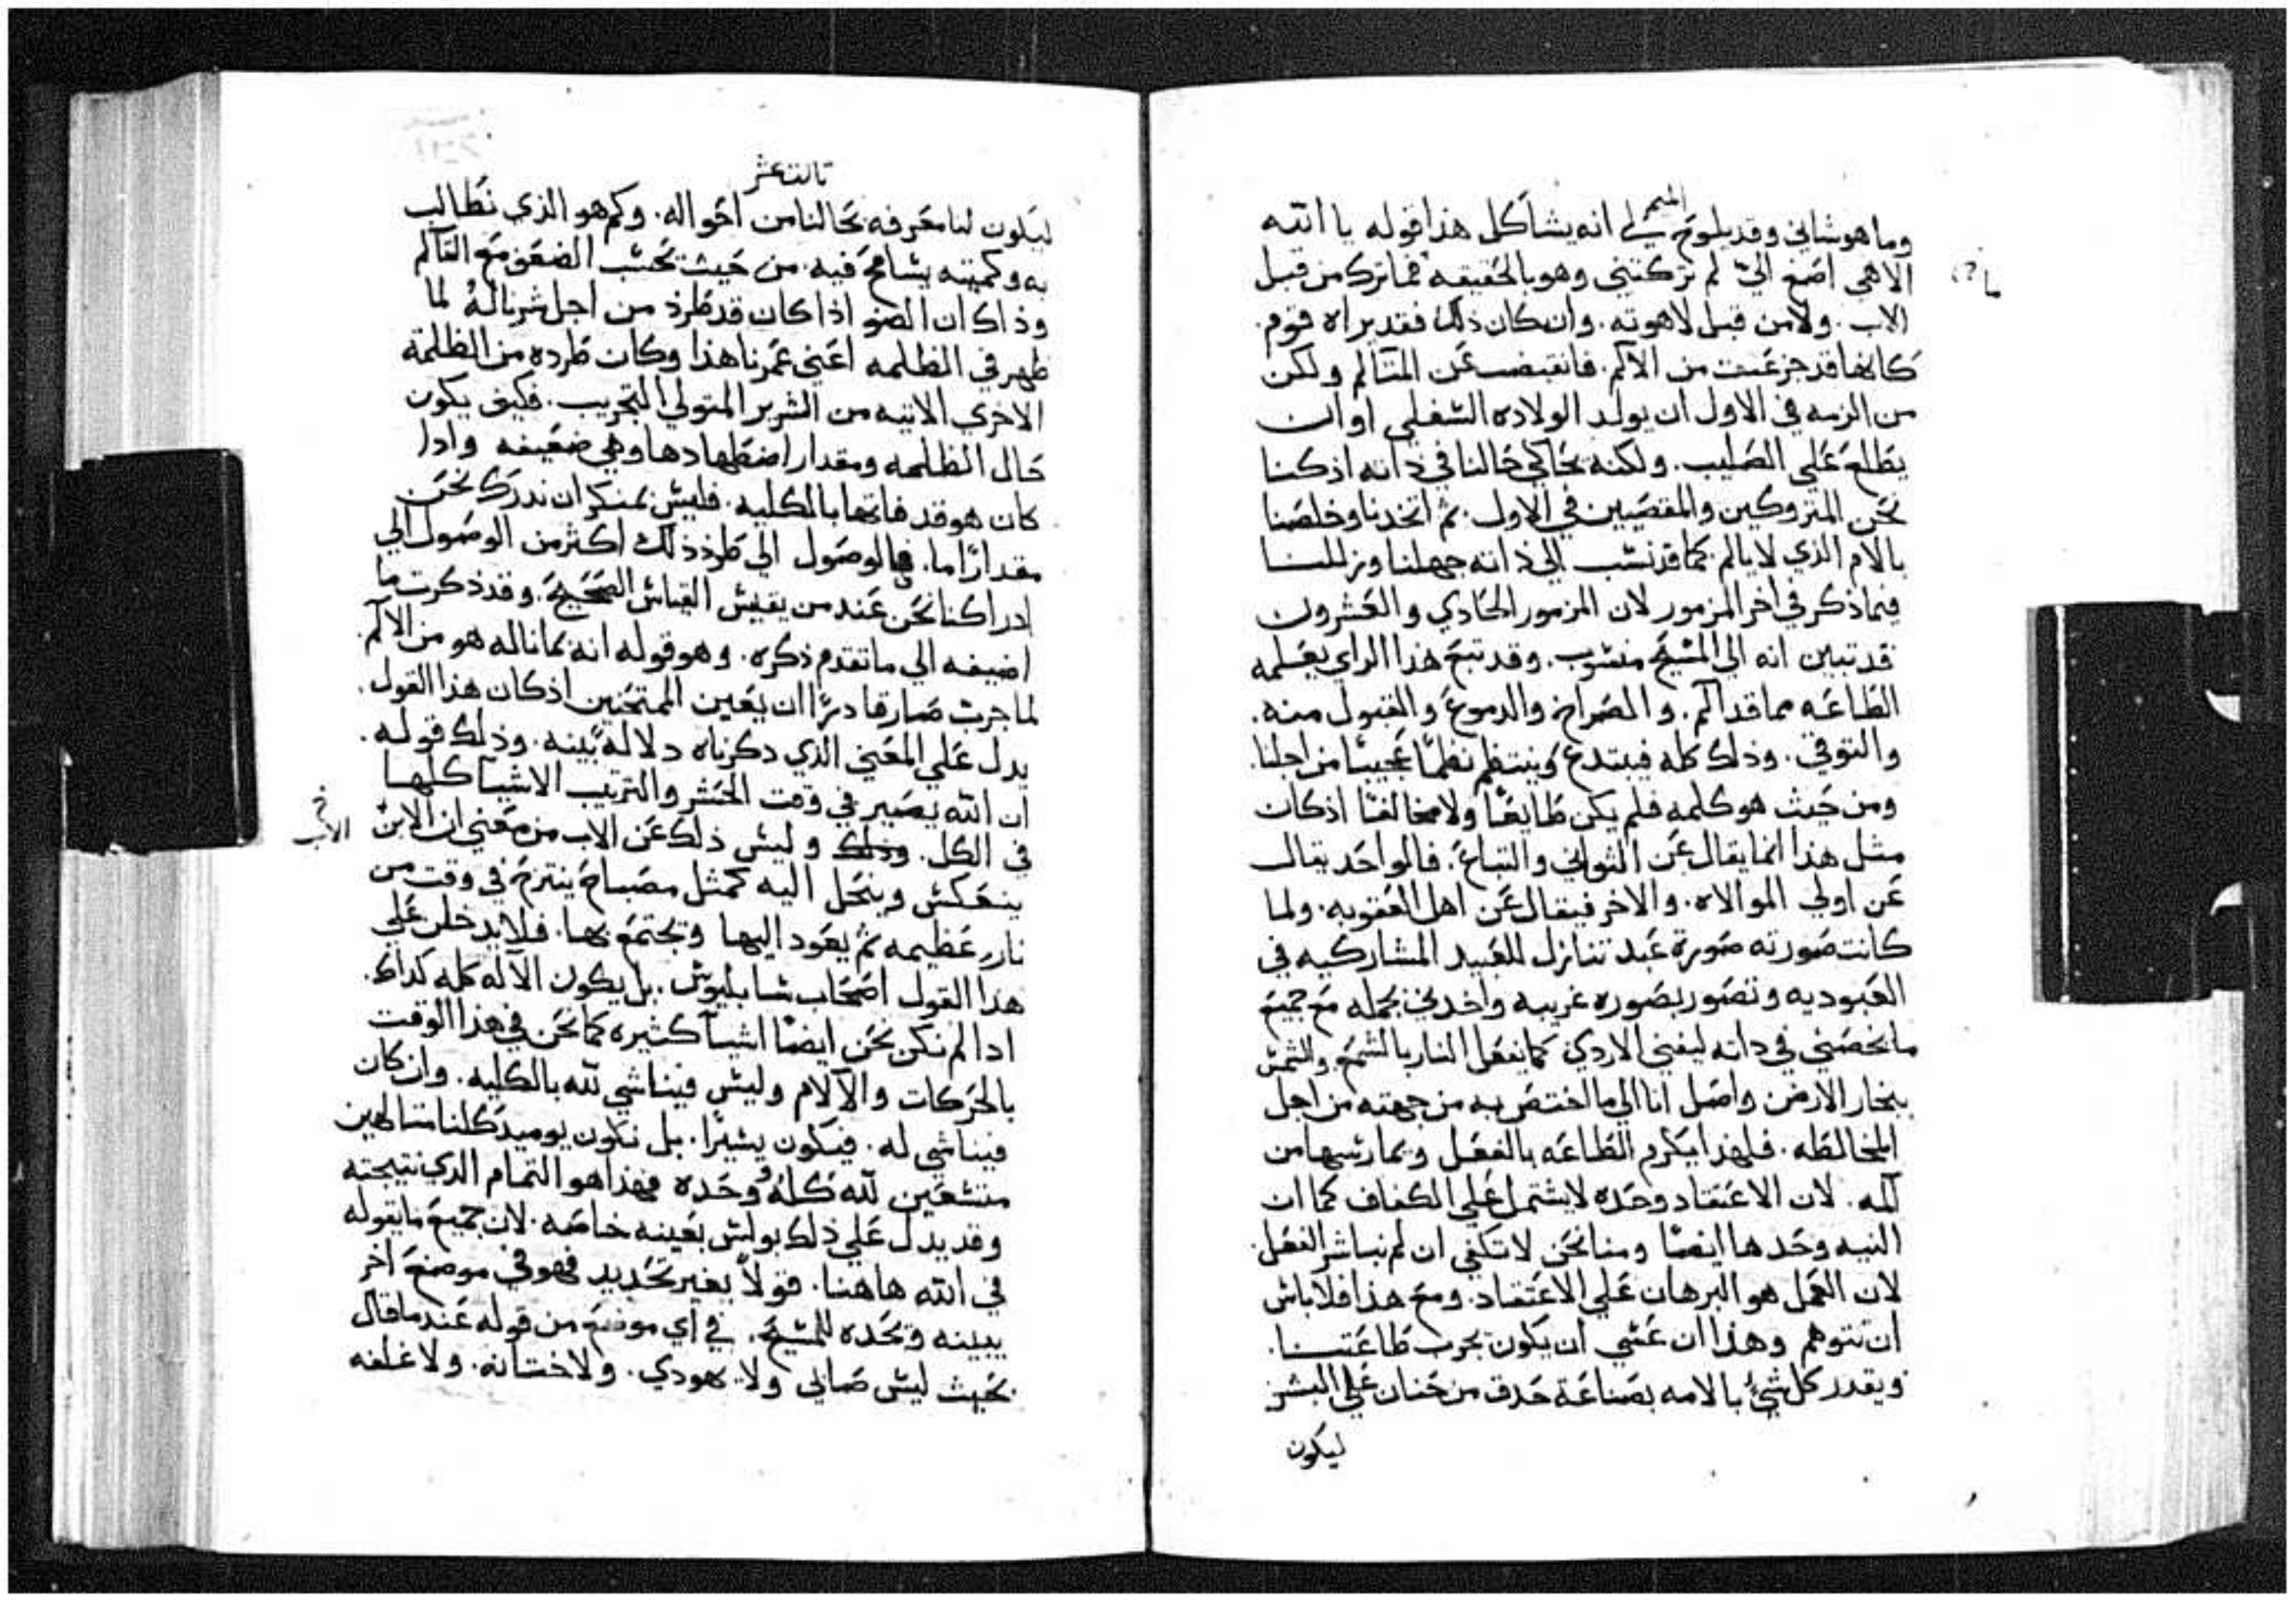 المتمم
وما هو شاني وقد يلوح لي انه يشاكل هذا قوله يا الله
الاهي اصغ اليّ لم تركتني وهو بالحقيقه فما ترك من قبل
ما
الاب. ولا من قبل لاهوته. وان كان ذلك فقد يراه قوم.
كانها قد جزعت من الالم. فانقبضت عن المتالم ولكن
من الزمه في الاول ان يولد الولاده السفلى او ان
يطلع على الصليب. ولكنه يحاكي حالنا في ذاته اذ كنا
نحن المتروكين والمقصيين في الاول. ثم اتخدنا وخلصنا
بالام الذي لا يالم كما قد نسب الي ذاته جهلنا وزللنا
فيما ذكر في اخر المزمور لان المزمور الحادي والعشرون
قد تبين انه الي المسيح منسوب. وقد تبع هذا الراي يعلمه
الطاعه مما قد الم. والصراخ والدموع والقبول منه.
والتوقي. وذلك كله فيبتدع وينتظم نظمًا عجيبًا من اجلنا.
ومن حيث هو كلمه فلم يكن طايعًا ولا مخالفًا اذ كان
مثل هذا انما يقال عن الثواني والتباع. فالواحد يقال
عن اولي الموالاه. والاخر فيقال عن اهل العقوبه. ولما
كانت صورته صورة عبد تنازل للعبيد المشاركيه في
العبوديه وتصور بصوره غريبه واخدني بجمله مع جميع
ما يخصني في داته ليفني الاردي كما يفعل النار بالشمع والشمس
ببخار الارض واصل انا الي ما اختص به من جهته من اجل
المخالطه. فلهذا يكرم الطاعه بالفعل ويمارسها من
المه. لان الاعتقاد وحده لا يشتمل على الكفاف كما ان
النيه وحدها ايضًا ومنا نحن لا تكفي ان لم نباشر الفعل.
لان العمل هو البرهان علي الاعتقاد. ومع هذا فلا باس
ان نتوهم وهذا ان عسي ان يكون يجرب طاعتنا.
ويقدر كل شيء بالامه بصناعة حدق من حنان علي البشر
ليكون
ثالث عشر
ليكون لنا معرفه بحالنا من احواله. وكم هو الذي نطالب
به وكميته يسامح فيه. من حيث تحسب الضعف مع التالم
وذاك ان الضو اذا كان قد طرد من اجل شر ناله لما
ظهر في الظلمه اعني عمرنا هذا وكان طرده من الظلمة
الاخري الاتيه من الشرير المتولي التجريب. فكيف يكون
حال الظلمه ومقدار اضطهادها وهي ضعيفه وادا
كان هو قد فاتها بالكليه. فليس بمنكر ان ندرك نحن
مقدارًا ما. فالوصول الي طرد ذلك اكثر من الوصول الي
ادراكنا نحن عند من يقيس القياس الصحيح. وقد ذكرت ما
اضيفه الي ما تقدم ذكره. وهو قوله انه بما ناله هو من الالم.
لما جرب صار قادرًا ان يعين الممتحنين اذ كان هذا القول.
يدل علي المعني الذي دكرناه دلاله بينه. وذلك قوله.
ان الله يصير في وقت الحشر والترتيب الاشيا كلها
في الكل. وذلك وليس ذلك عن الاب من معني ان الابن
الاب
ينعكس وينحل اليه كمثل مصباح ينتزح في وقت من
نار عظيمه ثم يعود اليها ويجتمع بها. فلا يدخلن علي
هدا القول اصحاب سابليوس. بل يكون الاله كله كداك.
ادا لم نكن نحن ايضًا اشيا كثيره كما نحن في هذا الوقت
بالحركات والالام وليس فينا شي لله بالكليه. وان كان
فينا شي له. فيكون يسيرًا. بل نكون يوميد كلنا متالهين
متسعين لله كله وحده فهذا هو التمام الدي نتيجته
وقد يدل علي ذلك بولس بعينه خاصه. لان جميع ما يقوله
في الله هاهنا. قولاً بغير تحديد فهو في موضع اخر
يبينه ويحده للمسيح. في اي موضع من قوله عند ما قال
بحيث ليس صابي ولا يهودي. ولا ختانه. ولا غلفه